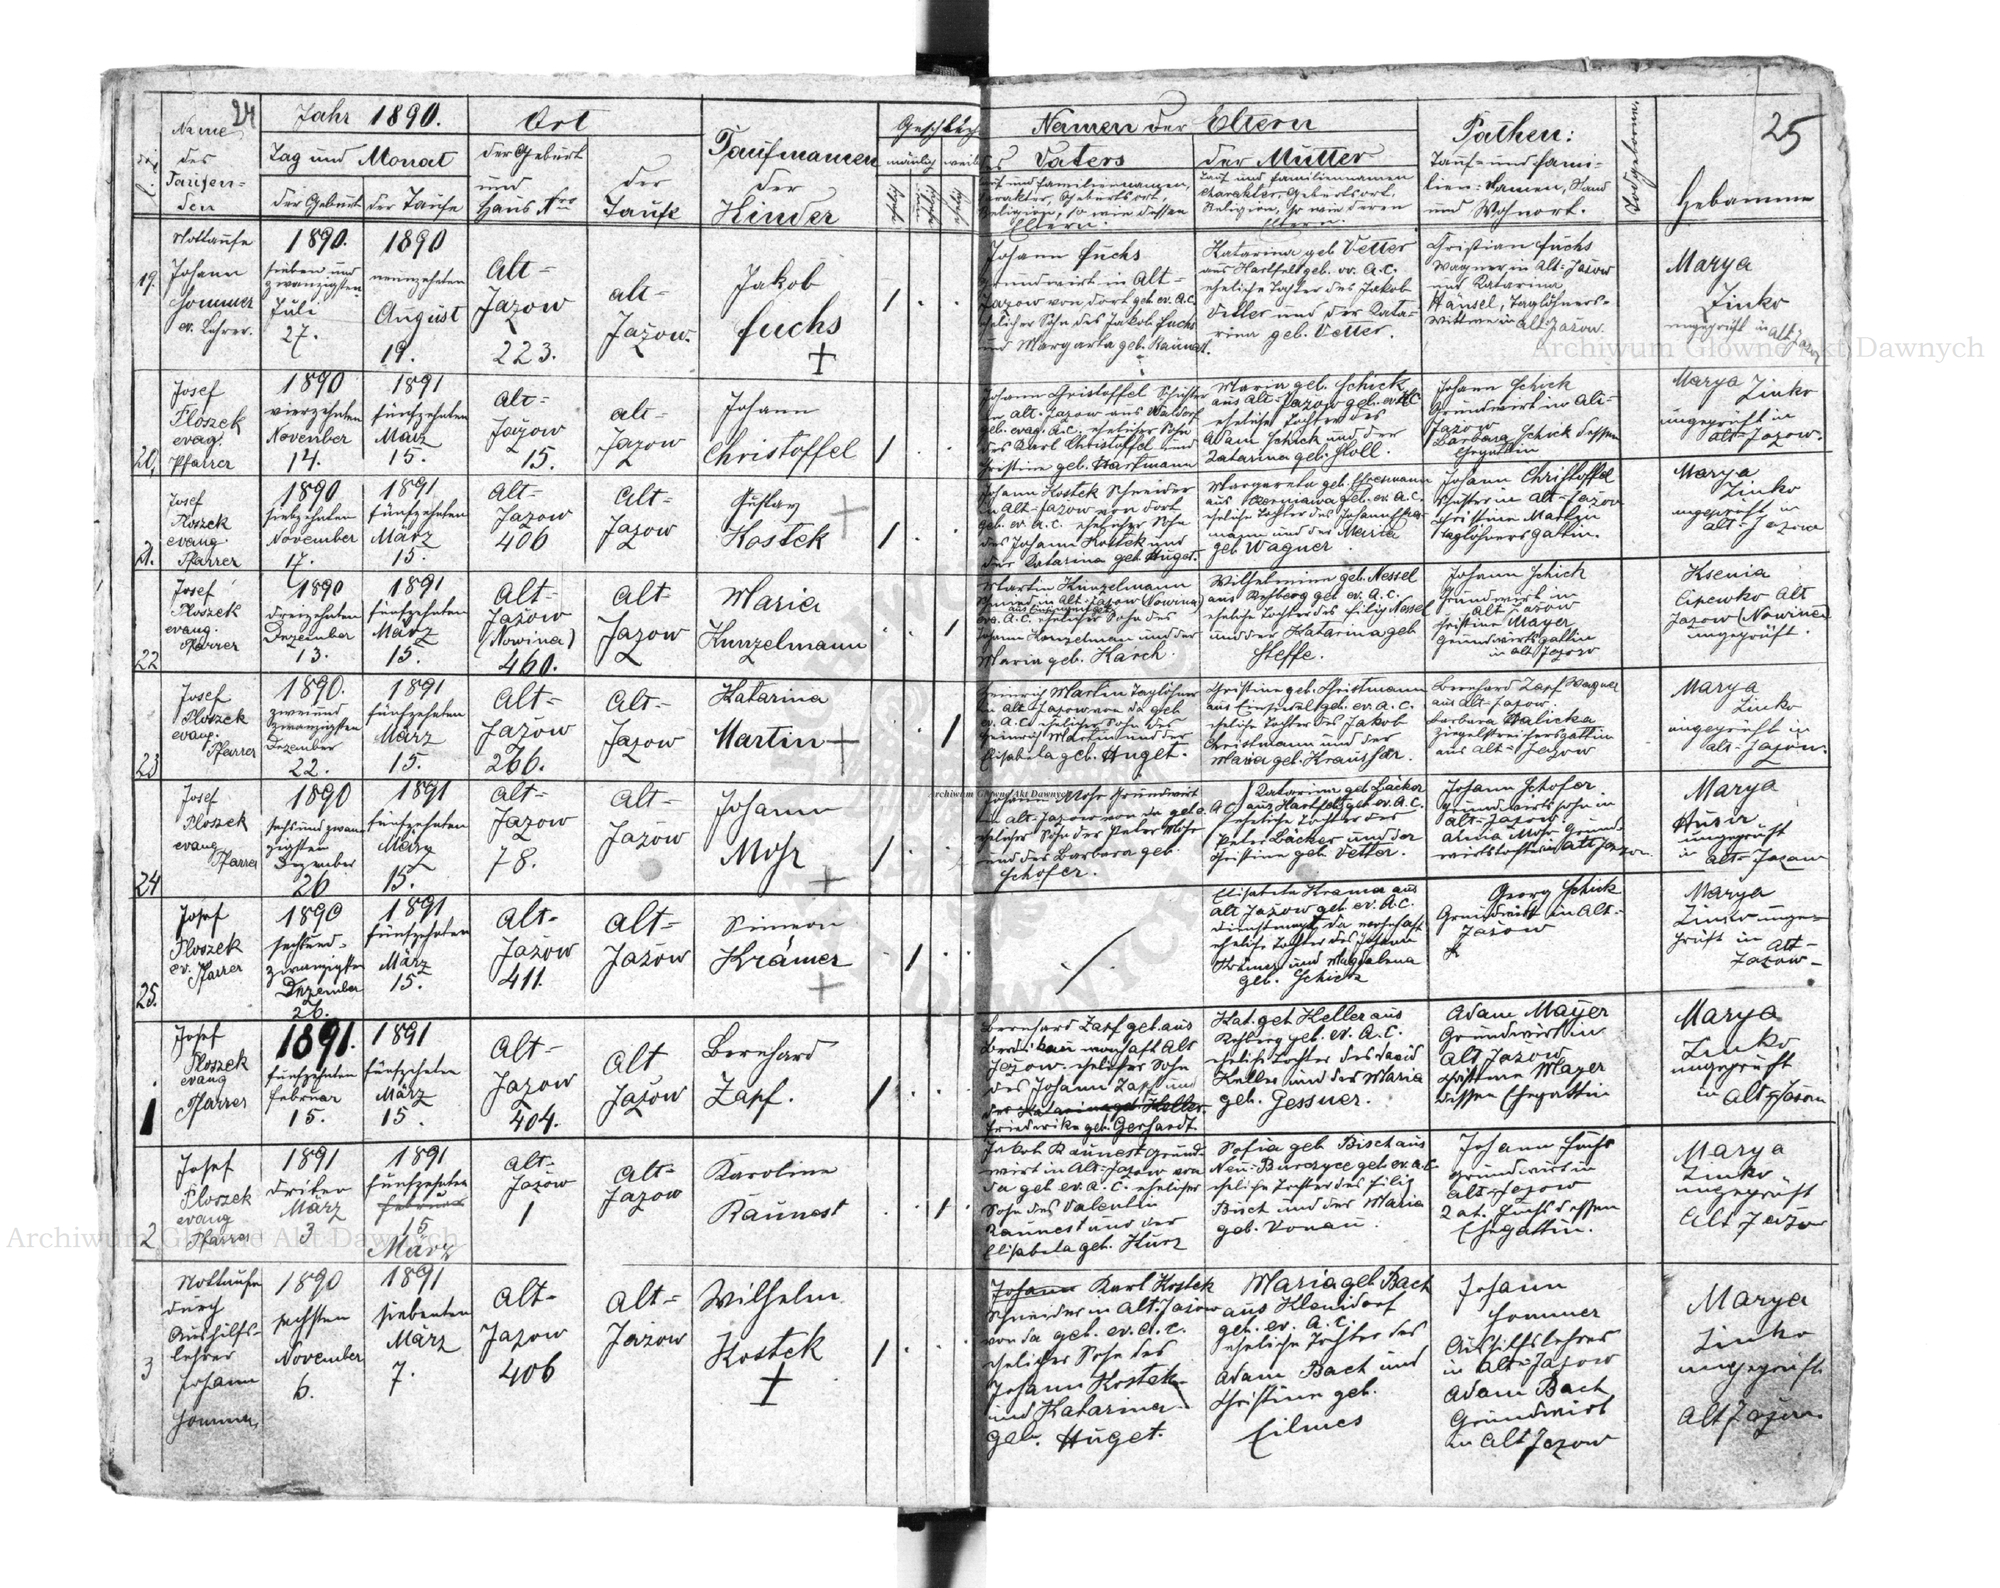 24
Name
des
Taufen-
den
Jahr 1890.
Tag und Monat
der Geburt
der Taufe
Ort
der Geburt
und
Haus Nro
der
Taufe
Taufnamen
der
Kinder
Geschlecht
männlich
weibl
Namen der Eltern
des Vaters
Tauf und Familiennamen,
Charakter, Geburtsort,
Religion, so wie dessen
Eltern.
der Mutter
Tauf und Familiennamen
Charakter, Geburtsort,
Religion, so wie deren
Eltern.
Pathen:
Tauf- und Fami-
lien-Namen, Stand
und Wohnort.
Todtgeboren.
Hebamme
25
19.
Nottaufe
Johann
Sommer
ev. Lehrer.
1890.
sieben und
zwanzigsten
Juli
27.
1890
neunzehnten
August
19.
Alt-
Jazow
223.
Alt-
Jazow.
Jakob
Fuchs
+
1
Johann Fuchs
Grundwirt in Alt-
Jazow von dort geb. ev. A.C.
ehelicher Sohn des Jakob Fuchs
und Margareta geb. Kaunest.
Katarina geb Vetter
aus Hartfeld geb. ev. A.C.
eheliche Tochter des Jakob
Vetter und der Kata-
rina geb. Vetter.
Christian Fuchs
Wagner in Alt-Jazow
und Katarina
Hänsel, Taglöhners-
wittwe in Alt-Jazow.
Marya
Zinko
ungeprüft in Alt-Jazow
20.
Josef
Ploszek
evag.
Pfarrer
1890
vierzehnten
November
14.
1891
fünfzehnten
März
15.
Alt-
Jazow
15.
Alt-
Jazow
Johann
Christoffel
1
Johann Christoffel Schuster
in Alt-Jazow aus Walddorf
geb. evag. A.C. ehelicher Sohn
des Karl Christoffel und
Christine geb. Hartmann
Maria geb. Schick
aus Alt-Jazow geb. ev. A.C
eheliche Tochter des
Adam Schick und der
Katarina geb. Stoll.
Johann Schick
Grundwirt in Alt-
Jazow
Barbara Schick dessen
Ehegattin
Marya Zinko
ungeprüft in
Alt-Jazow.
21.
Josef
Ploszek
evang.
Pfarrer
1890
siebzehnten
November
17.
1891
fünfzehnten
März
15.
Alt-
Jazow
406
Alt-
Jazow
Gustav
Kostek
+
1
Johann Kostek Schneider
in Alt-Jazow von dort
geb. ev. A.C. ehelicher Sohn
des Johann Kostek und
der Katarina geb. Huget.
Margareta geb. Ehresmann
geb. ev. A.C.
eheliche Tochter des Johann Ehres-
mann und der Maria
geb Wagner
Johann Christoffel
Schuster in Alt-Jazow
Christine Martin
Taglöhnersgattin.
Marya
Zinko
ungeprüft in
Alt-Jazow
22
Josef
Ploszek
evang.
Pfarrer
1890
dreizehnten
Dezember
13.
1891
fünfzehnten
März
15.
Alt-
Jazow
(Nowina)
460.
Alt
Jazow
Maria
Kunzelmann
1
Martin Kunzelmann
Schmied in Alt-Jazow (Nowina)
evg. A.C. ehelicher Sohn des
Johann Konzelman und der
Maria geb. Karch.
Wilhelmine geb. Nessel
aus Rehberg geb ev. A.C.
eheliche Tochter des Filip Nessel
und der Katarina geb
Steffe.
Johann Schick
Grundwirt in
Alt Jazow
Christine Mayer
Grundwirtsgattin
in Alt Jazow
Ksenia
Alt
Jazow (Nowina)
ungeprüft.
23
Josef
Ploszek
evang.
Pfarrer
1890.
zweiund
zwanzigsten
Dezember
22.
1891
fünfzehnten
März
15.
Alt-
Jazow
266.
Alt-
Jazow
Katarina
Martin +
1
Heinrich Martin Taglöhner
in Alt Jazow von da geb
ev. A.C. ehelicher Sohn des
Heinrich Martin und der
Elisabeta geb. Huget.
Christine geb. Christmann
aus Einsiedel geb. ev. A.C.
eheliche Tochter des Jakob
Christmann und der
Maria geb. Kraushar.
Bernhard Zapf Wagner
aus Alt-Jazow.
Barbara Halicka
Ziegelstreichersgattin
aus Alt-Jazow
Marya
Zinko
ungeprüft in
Alt-Jazow.
24
Josef
Ploszek
evang.
Pfarrer
1890
sechsundzwan-
zigsten
Dezember
26
1891
fünfzehnten
März
15.
Alt-
Jazow
78.
Alt-
Jazow
Johann
Mohr
+
1
Johann Mohr Grundwirt
in Alt-Jazow von da geb. A.C.
ehelicher Sohn des Peter Mohr
und der Barbara geb.
Schofer.
Katarina geb. Bäcker
aus Hartfeld geb. ev. A.C.
eheliche Tochter des
Peter Bäcker und der
Christine geb. Vetter.
Johann Schofer
Grundwirtssohn in
Alt-Jazow
Mohr Grund-
wirtstochter in Alt Jazow
Marya
ungeprüft
in
Alt-Jazow
25.
Josef
Ploszek
ev. Pfarrer
1890
sechsund-
zwanzigsten
Dezember
26.
1891
fünfzehnten
März
15.
Alt-
Jazow
411.
Alt-
Jazow
Simeon
Krämer
+
1
Elisabeta Krämer aus
Alt Jazow geb. ev. A.C.
Dienstmagd, da wohnhaft
eheliche Tochter des Johann
Krämer und Magdalena
geb. Schick
Georg Schick
Grundwirt in Alt-
Jazow
Marya
Zinko unge-
prüft in Alt-
Jazow-
1
Josef
Ploszek
evang
Pfarrer
1891.
fünfzehnten
Februar
15.
1891
fünfzehnten
März
15.
Alt-
Jazow
404.
Alt
Jazow
Bernhard
Zapf.
1
Bernhard Zapf geb. aus
wonhaft Alt
Jazow. ehelicher Sohn
des Johann Zapf und
der Katarina geb Keller.
Friederike geb. Gerhardt.
Kat. geb. Keller aus
Rehberg geb. ev. A.C.
eheliche Tochter des David
Keller und der Maria
geb. Gessner.
Adam Mayer
Grundwirt in
Alt Jazow
Christine Mayer
dessen Ehegattin
Marya
Zinko
ungeprüft
in Alt-Jazow
2
Josef
Ploszek
evang
Pfarrer
1891
driten
März
3
1891
fünfzehnten
Februar
15
März
Alt-
Jazow
1
Alt-
Jazow
Karoline
Kaunest
1
Jakob Kaunest Grund-
wirt in Alt-Jazow von
da geb. ev. A.C. ehelicher
Sohn des Valentin
Kaunest und der
Elisabeta geb. Kurz
Sofia geb Bisch aus
Neu-Burczyce geb ev. A.C.
eheliche Tochter des Filip
Bisch und der Maria
geb. Donau.
Johann Fuchs
Grundwirt in
Alt-Jazow
Kat. Fuchs dessen
Ehegattin.
Marya
Zinko
ungeprüft
Alt Jazow
3
Nottaufe
durch
Aushilfs-
lehrer
Johann
Sommer
1890
sechsten
November
6.
1891
siebenten
März
7.
Alt-
Jazow
406
Alt-
Jazow
Wilhelm
Kostek
+
1
Johann Karl Kostek
Schneider in Alt-Jazow
von da geb. ev. A.C.
ehelicher Sohn des
Johann Kostek
und Katarina
geb. Huget.
Maria geb Bach
aus Kleindorf
geb. ev. A.C.
eheliche Tochter des
Adam Bach und
Christine geb.
Eilmes
Johann
Sommer
Aushilfslehrer
in Alt-Jazow
Adam Bach
Grundwirt
in Alt Jazow
Marya
Zinko
ungeprüft
Alt Jazow
Archiwum Główne Akt Dawnych
Archiwum Główne Akt Dawnych
Archiwum Główne Akt Dawnych